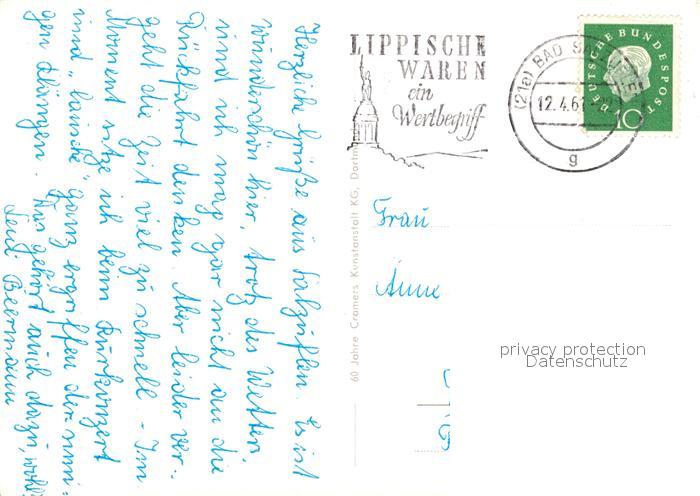 Herzliche Grüße aus Salzuflen. Es ist
wunderschön hier, trotz des Wetters,
und ich mag gar nicht an die
Rückfahrt denken. Aber leider ver-
geht die Zeit viel zu schnell - Im
Moment sitze ich beim Kurkonzert
und "lausche" ganz ergriffen den
gen Klängen. Das gehört auch dazu, wohl!
Beermann
LIPPISCHE
WAREN
ein
Wertbegriff
(21a) BAD
12.4.61
g
DEUTSCHE BUNDESPOST
10
60 Jahre Cramers Kunstanstalt KG, Dortm
Frau
Anne
privacy protection
Datenschutz